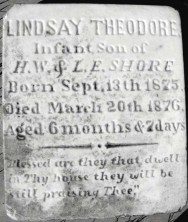 LINDSAY THEODORE
Infant Son of
H.W. & L.E. SHORE
Born Sept. 13th 1875
Died March 20th 1876
Aged 6 months & 7 days
"Blessed are they that dwell
in Thy house they will be
still praising Thee."